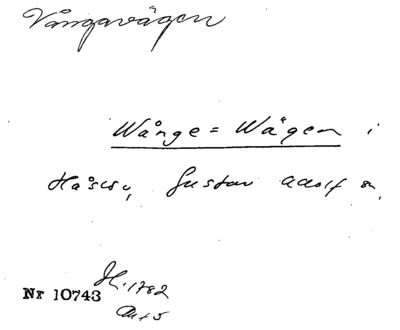 Vångavägen
Wånge=Wägen i
Håslöv, Gustav Adolf sn.
Nr 10743
H. 1782